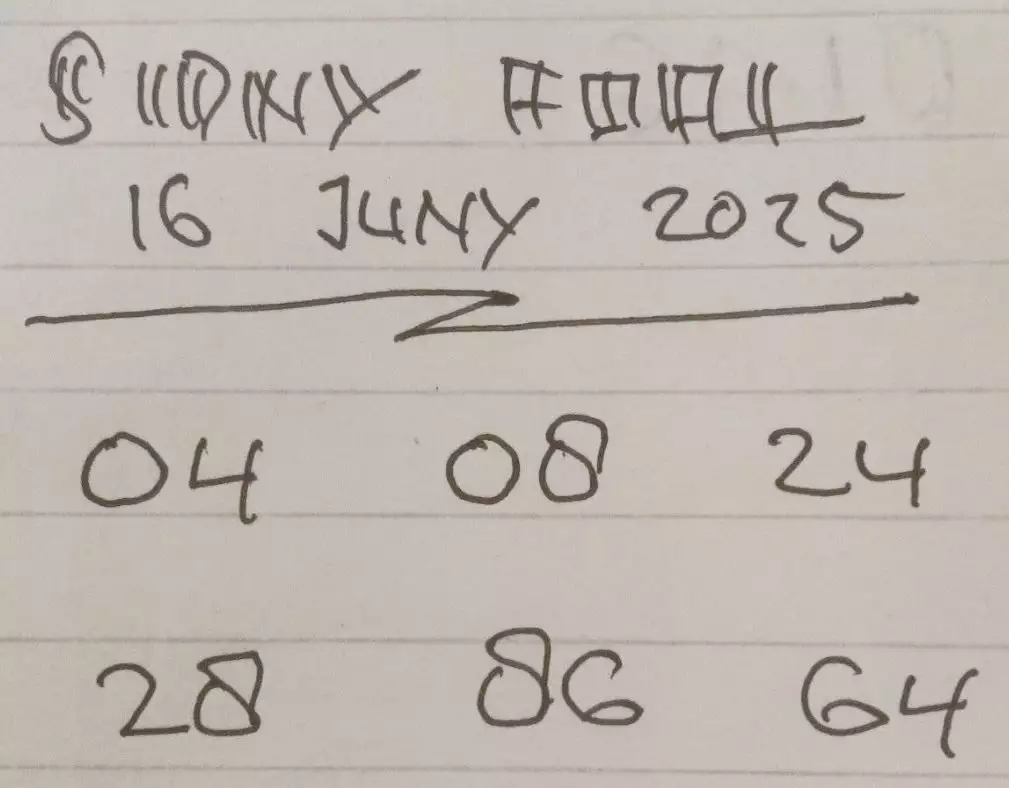 SIDNY
16 JUNY 2025
04 08 24
28 86 64